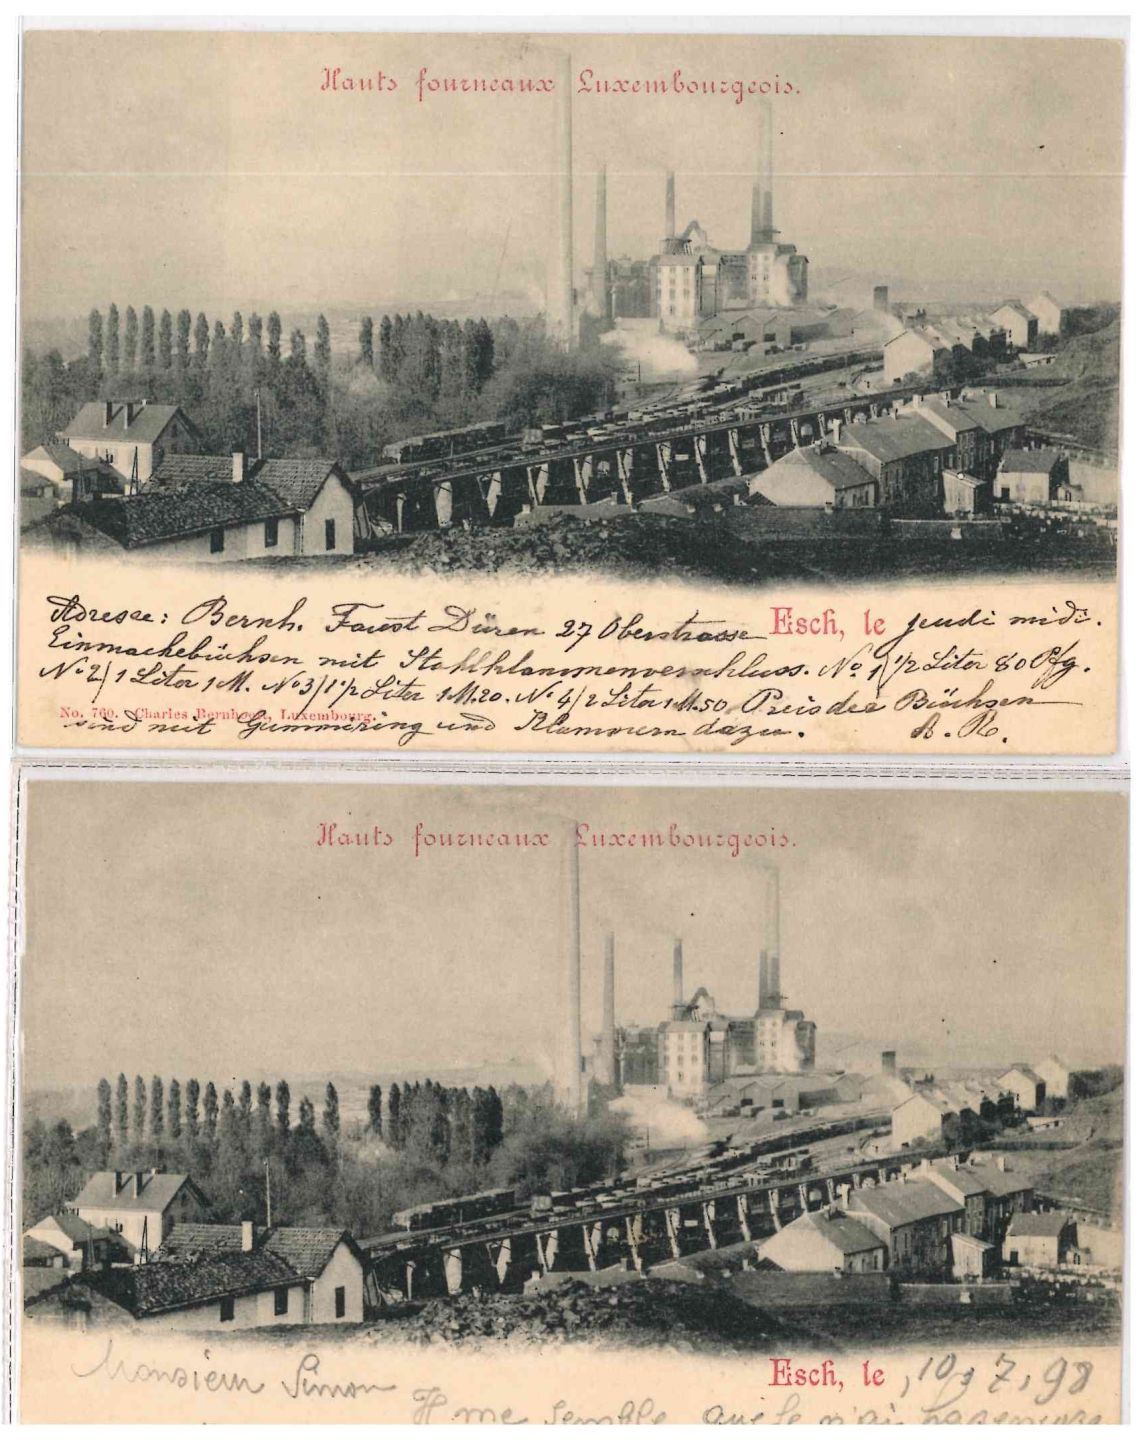 Hauts fourneaux Luxembourgeois.
Esch, le jeudi midi.
Adresse: Bernh. Faust Düren 27 Oberstrasse
Einmachebüchsen mit Stahlklammenverschluss. No. 1/ 1/2 Liter 80 Pfg.
No 2/ 1 Liter 1 M. No 3/ 1 1/2 Liter 1 M. 20. No 4/ 2 Liter 1 M. 50 Preis der Büchsen
No. 760. Charles Bernhoeft, Luxembourg.
sind mit Gummiring und Klammern dazu. A. R.
Hauts fourneaux Luxembourgeois.
Esch, le 10, 7, 98
Monsieur Simon
Il me semble que je n'ai